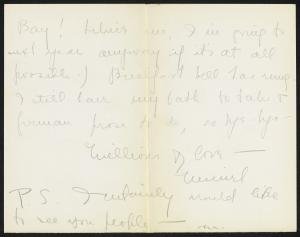 Bay! I'm going to
next year anyway if it's at all
possible.) Breakfast bell has rung
I still have my bath to take &
German prose to do, so bye-bye -
Millions of love —
P.S. I certainly would like
to see you people —